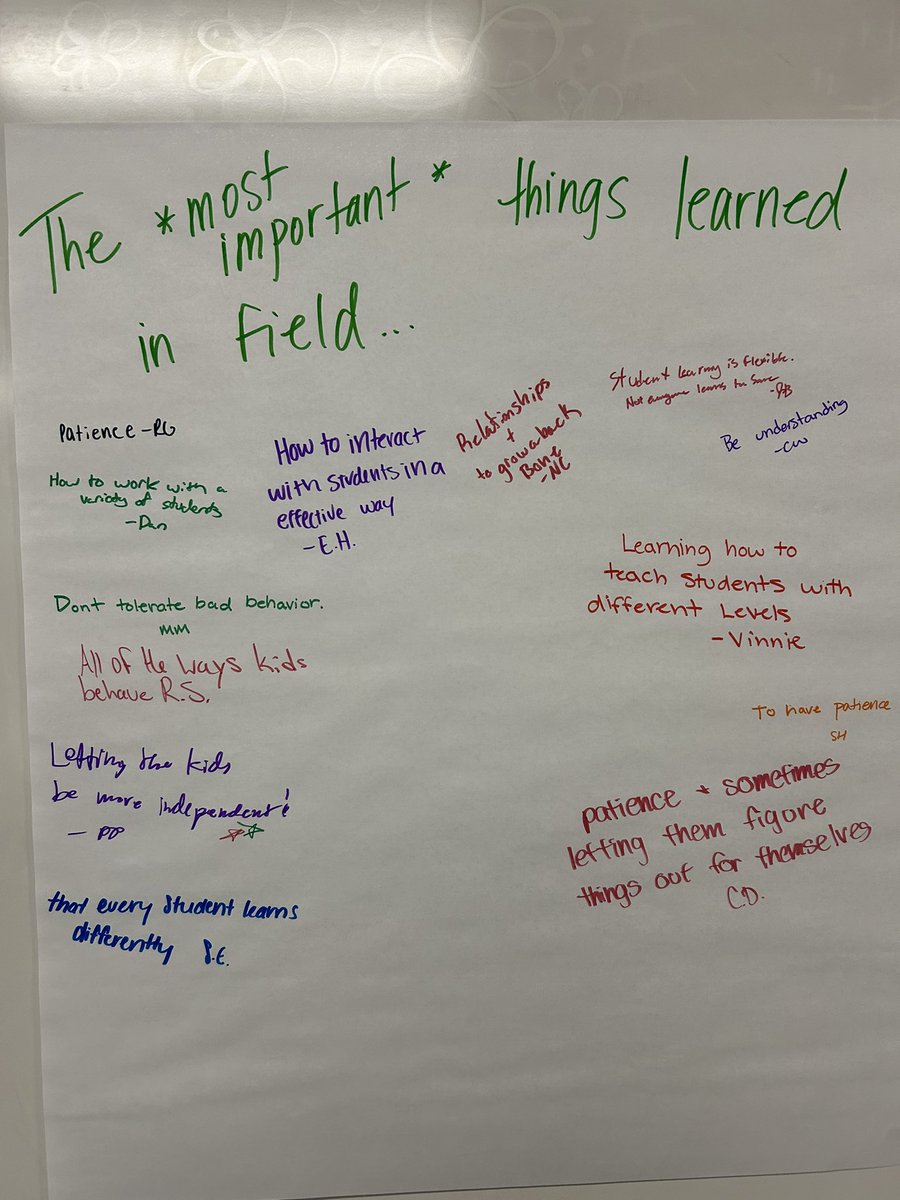 The *most important* things learned
in field...
Patience -RG
How to work with a
variety of students
-Dan
How to interact
with students in a
effective way
-E.H.
Relationships
+
to grow a back
Bone
-NC
Student learning is flexible.
Not everyone learns the same
Be understanding
-CW
Dont tolerate bad behavior.
MM
All of the ways kids
behave R.S.
Learning how to
teach Students with
different Levels
-Vinnie
To have patience
SH
Letting the kids
be more independent!
- PP
patience + sometimes
letting them figure
things out for themselves
C.D.
that every student learns
differently S.E.